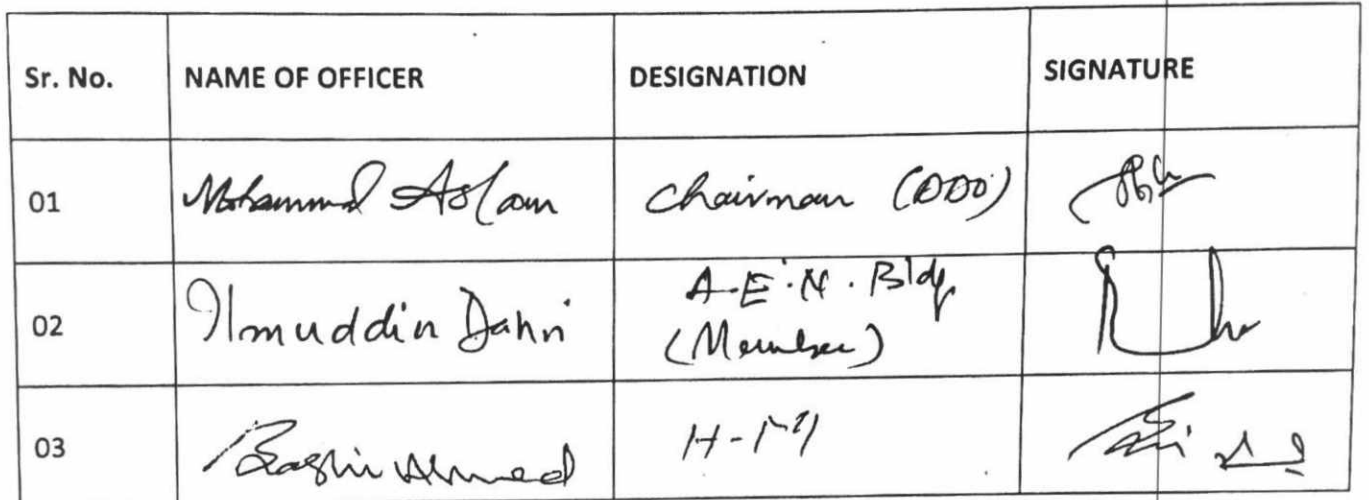 Sr. No. NAME OF OFFICER DESIGNATION SIGNATURE
01 Mohammad Aslam Chairman (DDO)
A.E.N. Bldg
02 Ilmuddin Dahri
(Member)
03 Bashir Ahmed H-M